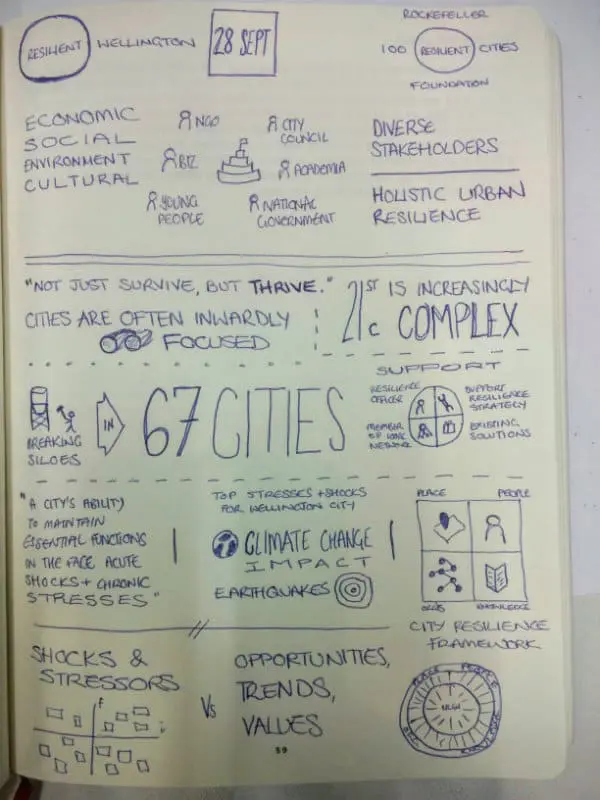 RESILIENT WELLINGTON
28 SEPT
ROCKEFELLER
100 RESILIENT CITIES
FOUNDATION
ECONOMIC
SOCIAL
ENVIRONMENT
CULTURAL
NGO
CITY
COUNCIL
BIZ
ACADEMIA
YOUNG
PEOPLE
NATIONAL
GOVERNMENT
DIVERSE
STAKEHOLDERS
HOLISTIC URBAN
RESILIENCE
"NOT JUST SURVIVE, BUT THRIVE."
CITIES ARE OFTEN INWARDLY
FOCUSED
21ST C IS INCREASINGLY
COMPLEX
BREAKING
SILOES
IN
67 CITIES
SUPPORT
RESILIENCE
OFFICER
SUPPORT
RESILIENCE
STRATEGY
MEMBER
OF 100RC
NETWORK
EXISTING
SOLUTIONS
"A CITY'S ABILITY
TO MAINTAIN
ESSENTIAL FUNCTIONS
IN THE FACE ACUTE
SHOCKS + CHRONIC
STRESSES"
TOP STRESSES + SHOCKS
FOR WELLINGTON CITY
CLIMATE CHANGE
IMPACT
EARTHQUAKES
PLACE
PEOPLE
ORGS
KNOWLEDGE
CITY RESILIENCE
FRAMEWORK
SHOCKS &
STRESSORS
Vs
OPPORTUNITIES,
TRENDS,
VALUES
PLACE
PEOPLE
ORG
KNOWLEDGE
59